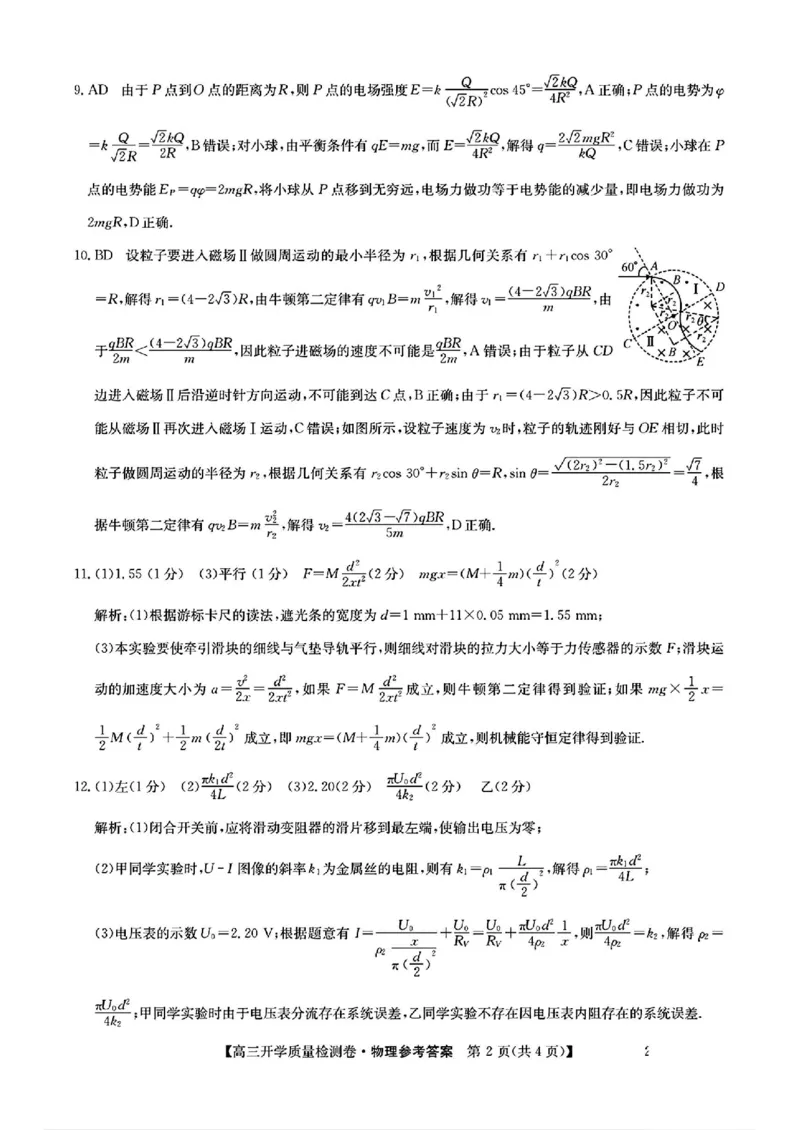 9. AD　由于 P 点到O 点的距离为R,则 P 点的电场强度E=k \frac{Q}{(\sqrt{2}R)^2}cos 45°=\frac{\sqrt{2}kQ}{4R^2},A 正确;P 点的电势为φ
=k \frac{Q}{\sqrt{2}R}=\frac{\sqrt{2}kQ}{2R},B错误;对小球,由平衡条件有 qE=mg,而 E=\frac{\sqrt{2}kQ}{4R^2},解得 q=\frac{2\sqrt{2}mgR^2}{kQ},C 错误;小球在 P
点的电势能 E_P=qφ=2mgR,将小球从 P 点移到无穷远,电场力做功等于电势能的减少量,即电场力做功为
2mgR,D正确.
10. BD　设粒子要进入磁场Ⅱ做圆周运动的最小半径为 r_1,根据几何关系有 r_1+r_1cos 30°
=R,解得 r_1=(4-2\sqrt{3})R,由牛顿第二定律有 qv_1B=m\frac{v_1^2}{r_1},解得 v_1=\frac{(4-2\sqrt{3})qBR}{m},由
于\frac{qBR}{2m}<\frac{(4-2\sqrt{3})qBR}{m},因此粒子进磁场的速度不可能是\frac{qBR}{2m},A 错误;由于粒子从 CD
60° A B Ⅰ D r_2 r_2 r_2 O r_2 θ r_2 C Ⅱ B E
边进入磁场Ⅱ后沿逆时针方向运动,不可能到达 C 点,B 正确;由于 r_1=(4-2\sqrt{3})R>0.5R,因此粒子不可
能从磁场Ⅱ再次进入磁场Ⅰ运动,C 错误;如图所示,设粒子速度为 v_2时,粒子的轨迹刚好与 OE 相切,此时
粒子做圆周运动的半径为 r_2,根据几何关系有 r_2cos 30°+r_2sin θ=R,sin θ=\frac{\sqrt{(2r_2)^2-(1.5r_2)^2}}{2r_2}=\frac{\sqrt{7}}{4},根
据牛顿第二定律有 qv_2B=m\frac{v_2^2}{r_2},解得 v_2=\frac{4(2\sqrt{3}-\sqrt{7})qBR}{5m},D 正确.
11. (1)1.55 (1 分)　(3)平行 (1 分)　F=M\frac{d^2}{2xt^2}(2 分)　mgx=(M+\frac{1}{4}m)(\frac{d}{t})^2(2 分)
解析:(1)根据游标卡尺的读法,遮光条的宽度为 d=1 mm+11×0.05 mm=1.55 mm;
(3)本实验要使牵引滑块的细线与气垫导轨平行,则细线对滑块的拉力大小等于力传感器的示数 F;滑块运
动的加速度大小为 a=\frac{v^2}{2x}=\frac{d^2}{2xt^2},如果 F=M\frac{d^2}{2xt^2}成立,则牛顿第二定律得到验证;如果 mg×\frac{1}{2}x=
\frac{1}{2}M(\frac{d}{t})^2+\frac{1}{2}m(\frac{d}{2t})^2 成立,即 mgx=(M+\frac{1}{4}m)(\frac{d}{t})^2 成立,则机械能守恒定律得到验证.
12. (1)左(1 分)　(2)\frac{πk_1d^2}{4L}(2 分)　(3)2.20(2 分)　\frac{πU_0d^2}{4k_2}(2 分)　乙(2 分)
解析:(1)闭合开关前,应将滑动变阻器的滑片移到最左端,使输出电压为零;
(2)甲同学实验时,U-I 图像的斜率k_1为金属丝的电阻,则有 k_1=ρ_1\frac{L}{π(\frac{d}{2})^2},解得ρ_1=\frac{πk_1d^2}{4L};
(3)电压表的示数 U_0=2.20 V;根据题意有 I=\frac{U_0}{ρ_2\frac{x}{π(\frac{d}{2})^2}}+\frac{U_0}{R_V}=\frac{U_0}{R_V}+\frac{πU_0d^2}{4ρ_2}\frac{1}{x},则\frac{πU_0d^2}{4ρ_2}=k_2,解得 ρ_2=
\frac{πU_0d^2}{4k_2};甲同学实验时由于电压表分流存在系统误差,乙同学实验不存在因电压表内阻存在的系统误差.
【高三开学质量检测卷·物理参考答案　第 2 页(共 4 页)】　2